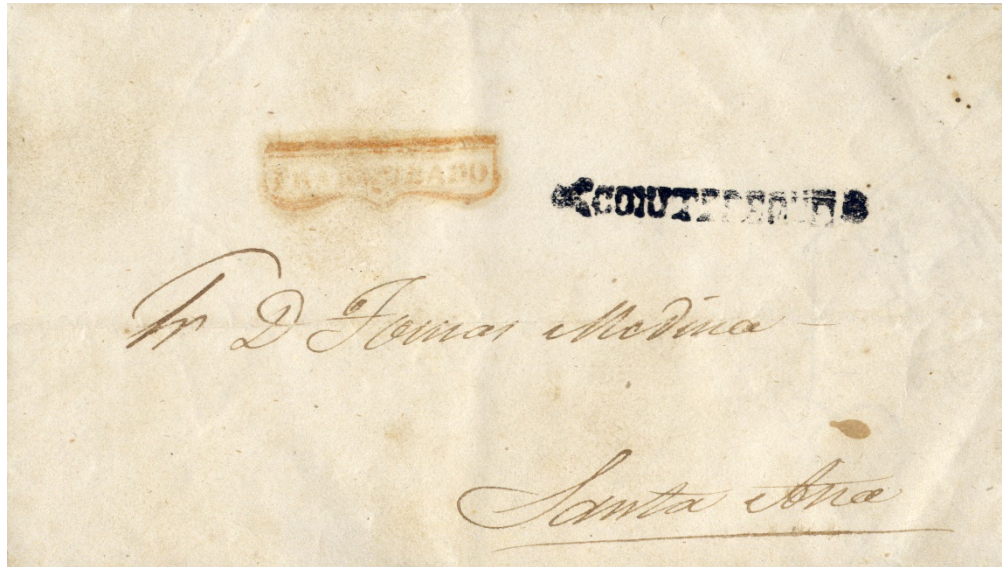 FRANQUEADO
COJUTEPEQUE
Sr D Tomas Medina –
Santa Ana